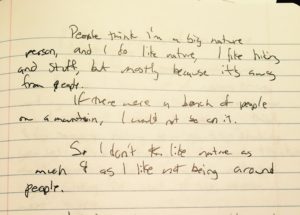 People think I'm a big nature
person, and I do like nature, I like hiking
and stuff, but mostly because it's away
from people.
If there were a bunch of people
on a mountain, I would not go on it.
So I don't like nature as
much as I like not being around
people.